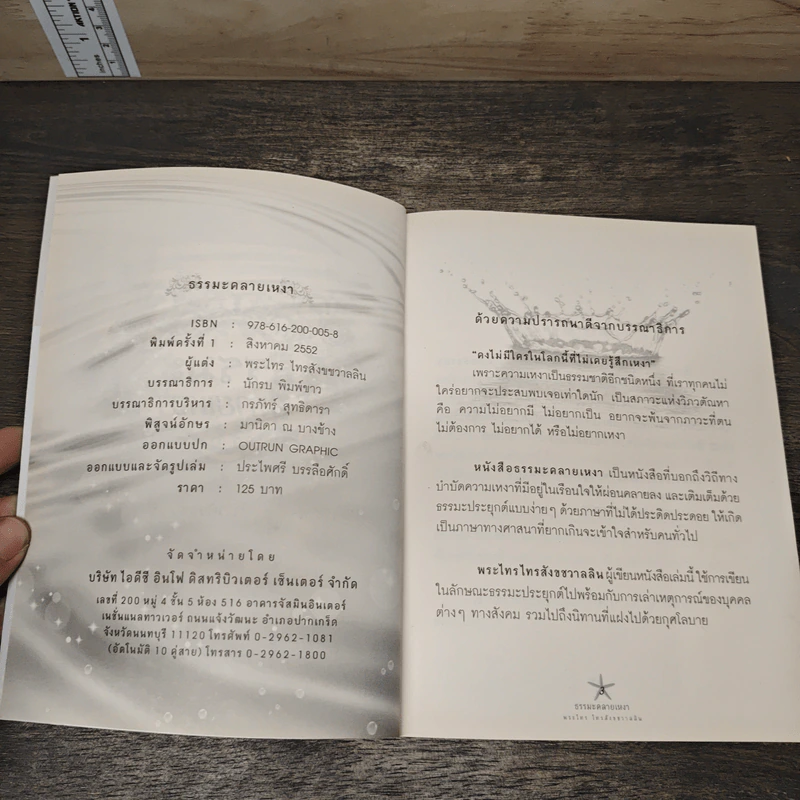 ธรรมะคลายเหงา
ISBN : 978-616-200-005-8
พิมพ์ครั้งที่ 1 : สิงหาคม 2552
ผู้แต่ง : พระไทร ไทรสังขชวาลลิน
บรรณาธิการ : นักรบ พิมพ์ขาว
บรรณาธิการบริหาร : กรภัทร์ สุทธิดารา
พิสูจน์อักษร : มานิดา ณ บางช้าง
ออกแบบปก : OUTRUN GRAPHIC
ออกแบบและจัดรูปเล่ม : ประไพศรี บรรลือศักดิ์
ราคา : 125 บาท
จัดจำหน่ายโดย
บริษัท ไอดีซี อินโฟ ดิสทริบิวเตอร์ เซ็นเตอร์ จำกัด
เลขที่ 200 หมู่ 4 ชั้น 5 ห้อง 516 อาคารจัสมินอินเตอร์
เนชั่นแนลทาวเวอร์ ถนนแจ้งวัฒนะ อำเภอปากเกร็ด
จังหวัดนนทบุรี 11120 โทรศัพท์ 0-2962-1081
(อัตโนมัติ 10 คู่สาย) โทรสาร 0-2962-1800
ด้วยความปรารถนาดีจากบรรณาธิการ
"คงไม่มีใครในโลกนี้ที่ไม่เคยรู้สึกเหงา"
เพราะความเหงาเป็นธรรมชาติอีกชนิดหนึ่ง ที่เราทุกคนไม่
ใคร่อยากจะประสบพบเจอเท่าใดนัก เป็นสภาวะแห่งวิภวตัณหา
คือ ความไม่อยากมี ไม่อยากเป็น อยากจะพ้นจากภาวะที่ตน
ไม่ต้องการ ไม่อยากได้ หรือไม่อยากเหงา
หนังสือธรรมะคลายเหงา เป็นหนังสือที่บอกถึงวิถีทาง
บำบัดความเหงาที่มีอยู่ในเรือนใจให้ผ่อนคลายลง และเติมเต็มด้วย
ธรรมะประยุกต์แบบง่ายๆ ด้วยภาษาที่ไม่ได้ประดิดประดอย ให้เกิด
เป็นภาษาทางศาสนาที่ยากเกินจะเข้าใจสำหรับคนทั่วไป
พระไทร ไทรสังขชวาลลิน ผู้เขียนหนังสือเล่มนี้ ใช้การเขียน
ในลักษณะธรรมะประยุกต์ไปพร้อมกับการเล่าเหตุการณ์ของบุคคล
ต่างๆ ทางสังคม รวมไปถึงนิทานที่แฝงไปด้วยกุศโลบาย
3
ธรรมะคลายเหงา
พระไทร ไทรสังขชวาลลิน